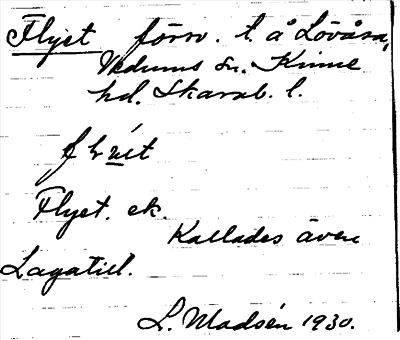 Flyet försv. t. å Lövåsa,
Vedums sn. Kinne
hd. Skarab. l.
Flyet. ek.
Kallades även
Lagatill.
L. Madsén 1930.